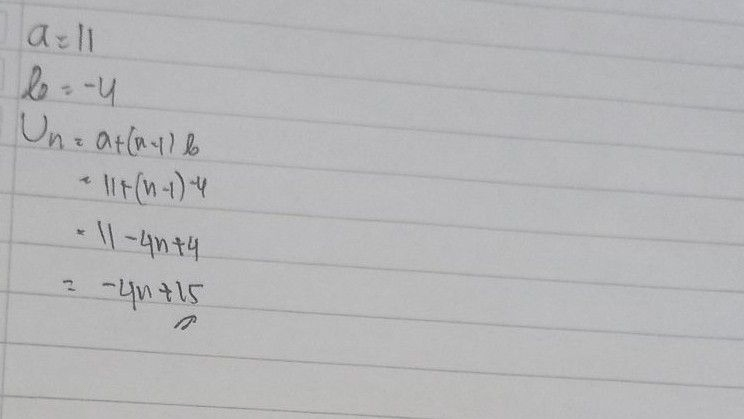 a = 11
b = -4
Un = a+(n-1) b
= 11+(n-1)-4
= 11 -4n+4
= -4n+15